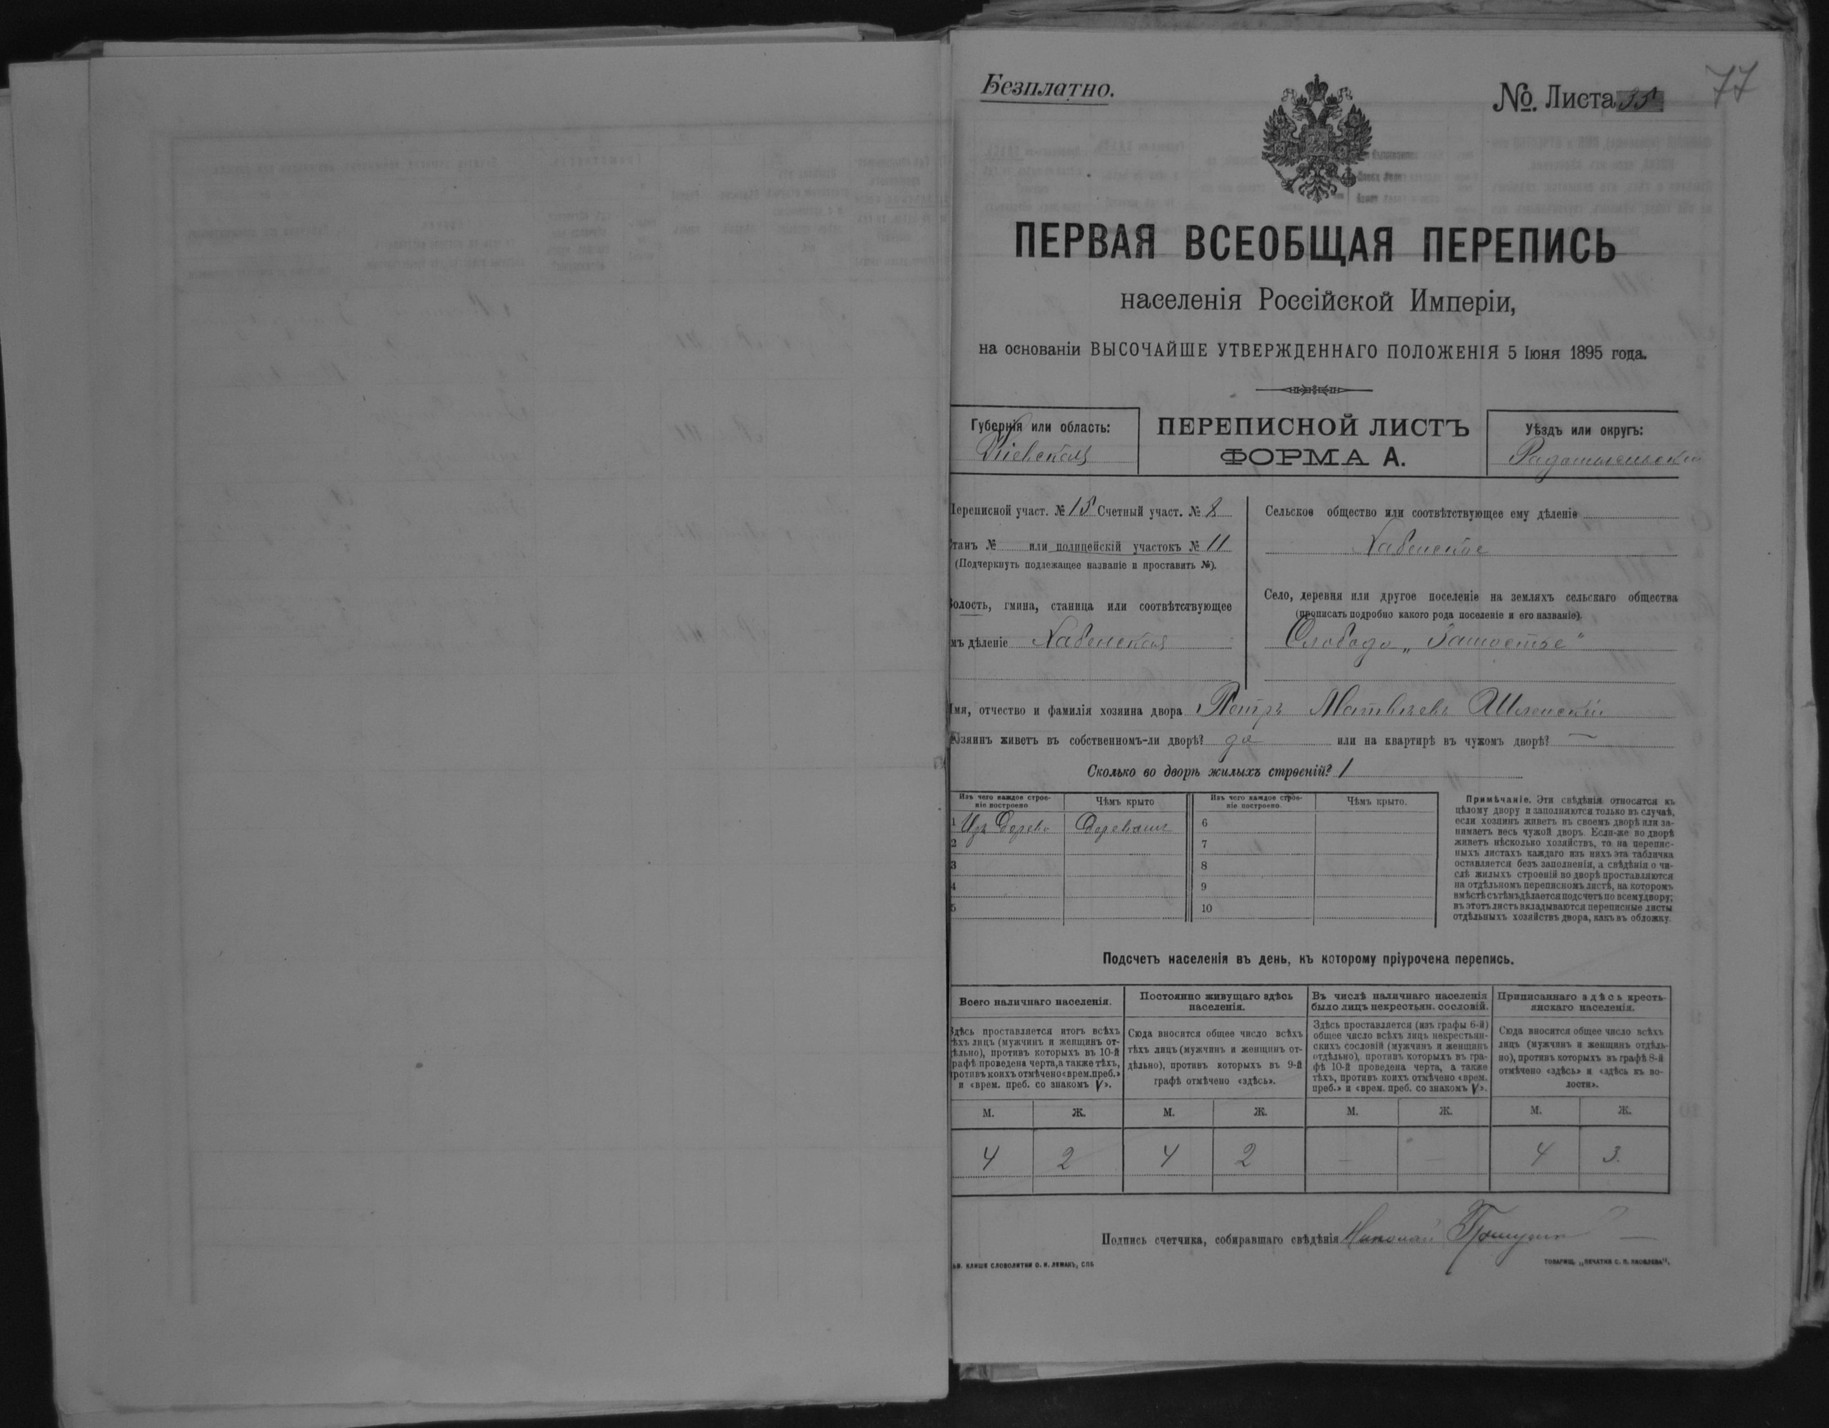 Безплатно.
№ Листа 77
ПЕРВАЯ ВСЕОБЩАЯ ПЕРЕПИСЬ
населенія Россійской Имперіи,
на основаніи ВЫСОЧАЙШЕ УТВЕРЖДЕННАГО ПОЛОЖЕНІЯ 5 Іюня 1895 года.
Губернія или область:
Кіевская
ПЕРЕПИСНОЙ ЛИСТЪ
ФОРМА А.
Уѣздъ или округъ:
Радомысльскій
Переписной участ. № 15 Счетный участ. № 8
Станъ № или полицейскій участокъ № 11
(Подчеркнуть подлежащее названіе и проставить №).
Волость, гмина, станица или соотвѣтствующее
имъ дѣленіе Хабенская
Сельское общество или соотвѣтствующее ему дѣленіе
Хабенское
Село, деревня или другое поселеніе на земляхъ сельскаго общества
(прописать подробно какого рода поселеніе и его названіе)
Слобода „Замостье"
Имя, отчество и фамилія хозяина двора Петръ Матвѣевъ
Хозяинъ живетъ въ собственномъ-ли дворѣ? да или на квартирѣ въ чужомъ дворѣ? —
Сколько во дворѣ жилыхъ строеній? 1
Изъ чего каждое строеніе построено
Чѣмъ крыто
Изъ чего каждое строеніе построено.
Чѣмъ крыто.
1 Изъ дерева
6
2
7
3
8
4
9
5
10
Примѣчаніе. Эти свѣдѣнія относятся къ
цѣлому двору и заполняются только въ случаѣ,
если хозяинъ живетъ въ своемъ дворѣ или за-
нимаетъ весь чужой дворъ. Если-же во дворѣ
живетъ нѣсколько хозяйствъ, то на перепис-
ныхъ листахъ каждаго изъ нихъ эта табличка
оставляется безъ заполненія, а свѣдѣнія о чи-
слѣ жилыхъ строеній во дворѣ проставляются
на отдѣльномъ переписномъ листѣ, на которомъ
вмѣстѣ съ тѣмъ дѣлается подсчетъ по всему двору;
въ этотъ листъ вкладываются переписные листы
отдѣльныхъ хозяйствъ двора, какъ въ обложку.
Подсчетъ населенія въ день, къ которому пріурочена перепись.
Всего наличнаго населенія.
Здѣсь проставляется итогъ всѣхъ
тѣхъ лицъ (мужчинъ и женщинъ от-
дѣльно), противъ которыхъ въ 10-й
графѣ проведена черта, а также тѣхъ,
противъ коихъ отмѣчено «врем. преб.»
и «врем. преб. со знакомъ V».
Постоянно живущаго здѣсь
населенія.
Сюда вносится общее число всѣхъ
тѣхъ лицъ (мужчинъ и женщинъ от-
дѣльно), противъ которыхъ въ 9-й
графѣ отмѣчено «здѣсь».
Въ числѣ наличнаго населенія
было лицъ некрестьян. сословій.
Здѣсь проставляется (изъ графы 6-й)
общее число всѣхъ лицъ некрестьян-
скихъ сословій (мужчинъ и женщинъ
отдѣльно), противъ которыхъ въ гра-
фѣ 10-й проведена черта, а также
тѣхъ, противъ коихъ отмѣчено «врем.
преб.» и «врем. преб. со знакомъ V».
Приписаннаго здѣсь кресть-
янскаго населенія.
Сюда вносится общее число всѣхъ
лицъ (мужчинъ и женщинъ отдѣль-
но), противъ которыхъ въ графѣ 8-й
отмѣчено «здѣсь» и «здѣсь въ во-
лости».
М. Ж. М. Ж. М. Ж. М. Ж.
4 2 4 2 — — 4 3.
Подпись счетчика, собиравшаго свѣдѣнія Николай
КЛИШЕ СЛОВОЛИТНИ О. И. ЛЕМАНЪ, СПБ
ТОВАРИЩ. „ПЕЧАТНИ С. П. ЯКОВЛЕВА".